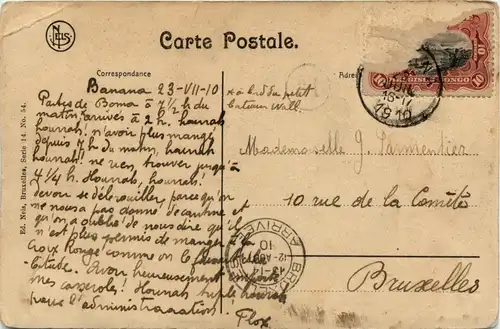 NELS
Carte Postale.
Correspondance
Adre
Banana 23-VII-10
Partis de Boma à 7 1/2 h du
matin, arrivés à 2 h. hourrah
hourrah! n'avoir plus mangé
depuis 7 h du matin, hourrah
hourrah! ne rien trouver jusqu'à
4 1/4 h. Hourrah, hourrah!
devoir se débrouiller, parce qu'on
ne nous a pas donné de cantine et
qu'on a oublié de nous dire qu'il
n'est plus permis de manger à la
Croix Rouge comme on le faisait
Avons heureusement emporté
mes casseroles! Hourrah triple hourrah
pour l'administration
Flox
à bord du petit
bateau Wall
Mademoiselle J. Parmentier
10 rue de la Comète
Bruxelles
Ed. Nels, Bruxelles, Serie 14. No. 54.
10
10
BELGISCH-CONGO
16-17
1910
ARRIVEE
12 AOUT
10